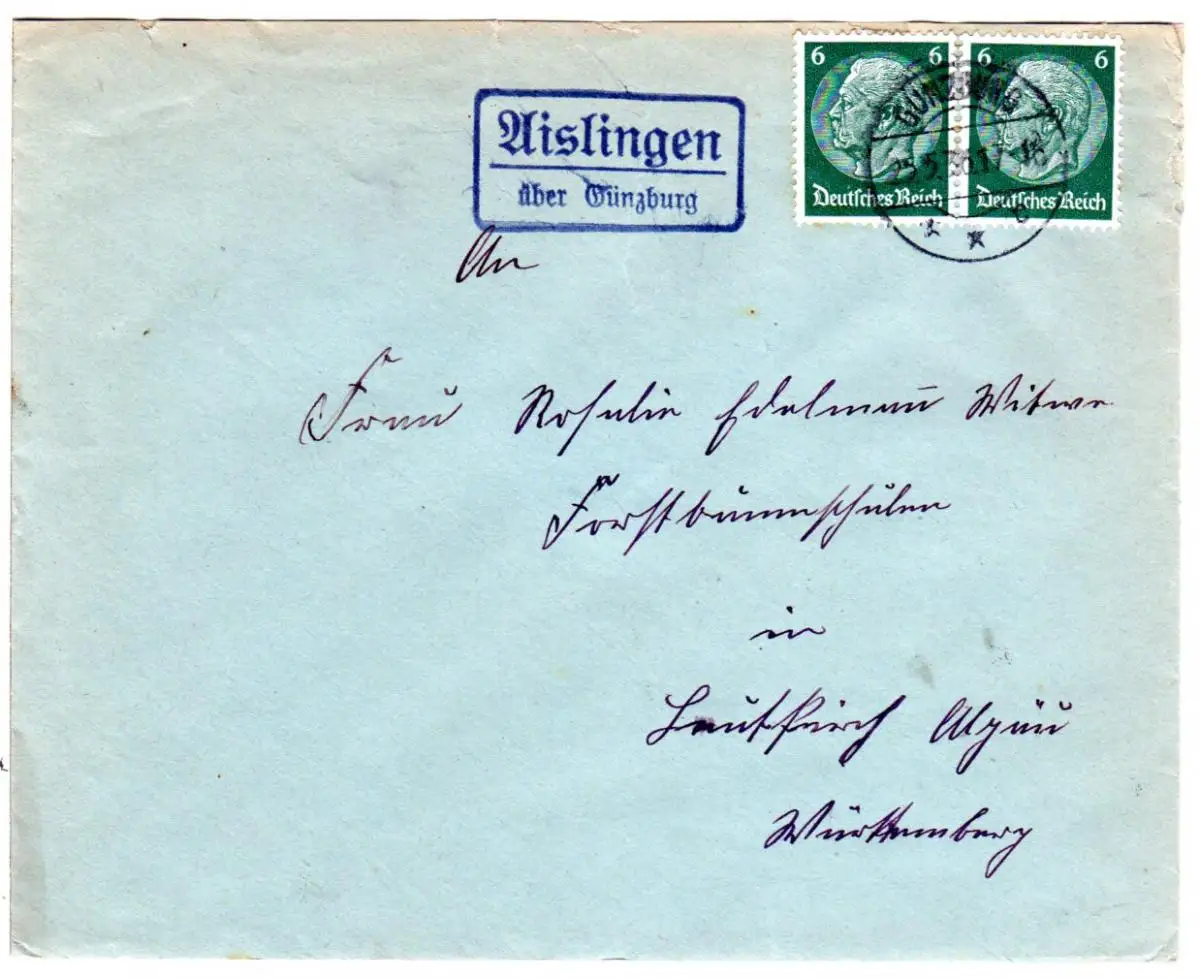 6 6 6 6
Aislingen
über Günzburg
GÜNZBURG
25.5.36.17-18
Deutsches Reich Deutsches Reich
* * c
An
Frau Rosalie Edelmann Witwe
Forstbaumschulen
in
Leutkirch Algäu
Württemberg